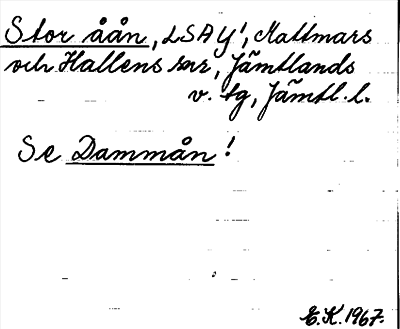 Stor åån, LSAY!, Mattmars
och Hallens snr, Jämtlands
v. tg, Jämtl. l.
Se Dammån!
E.K. 1967.